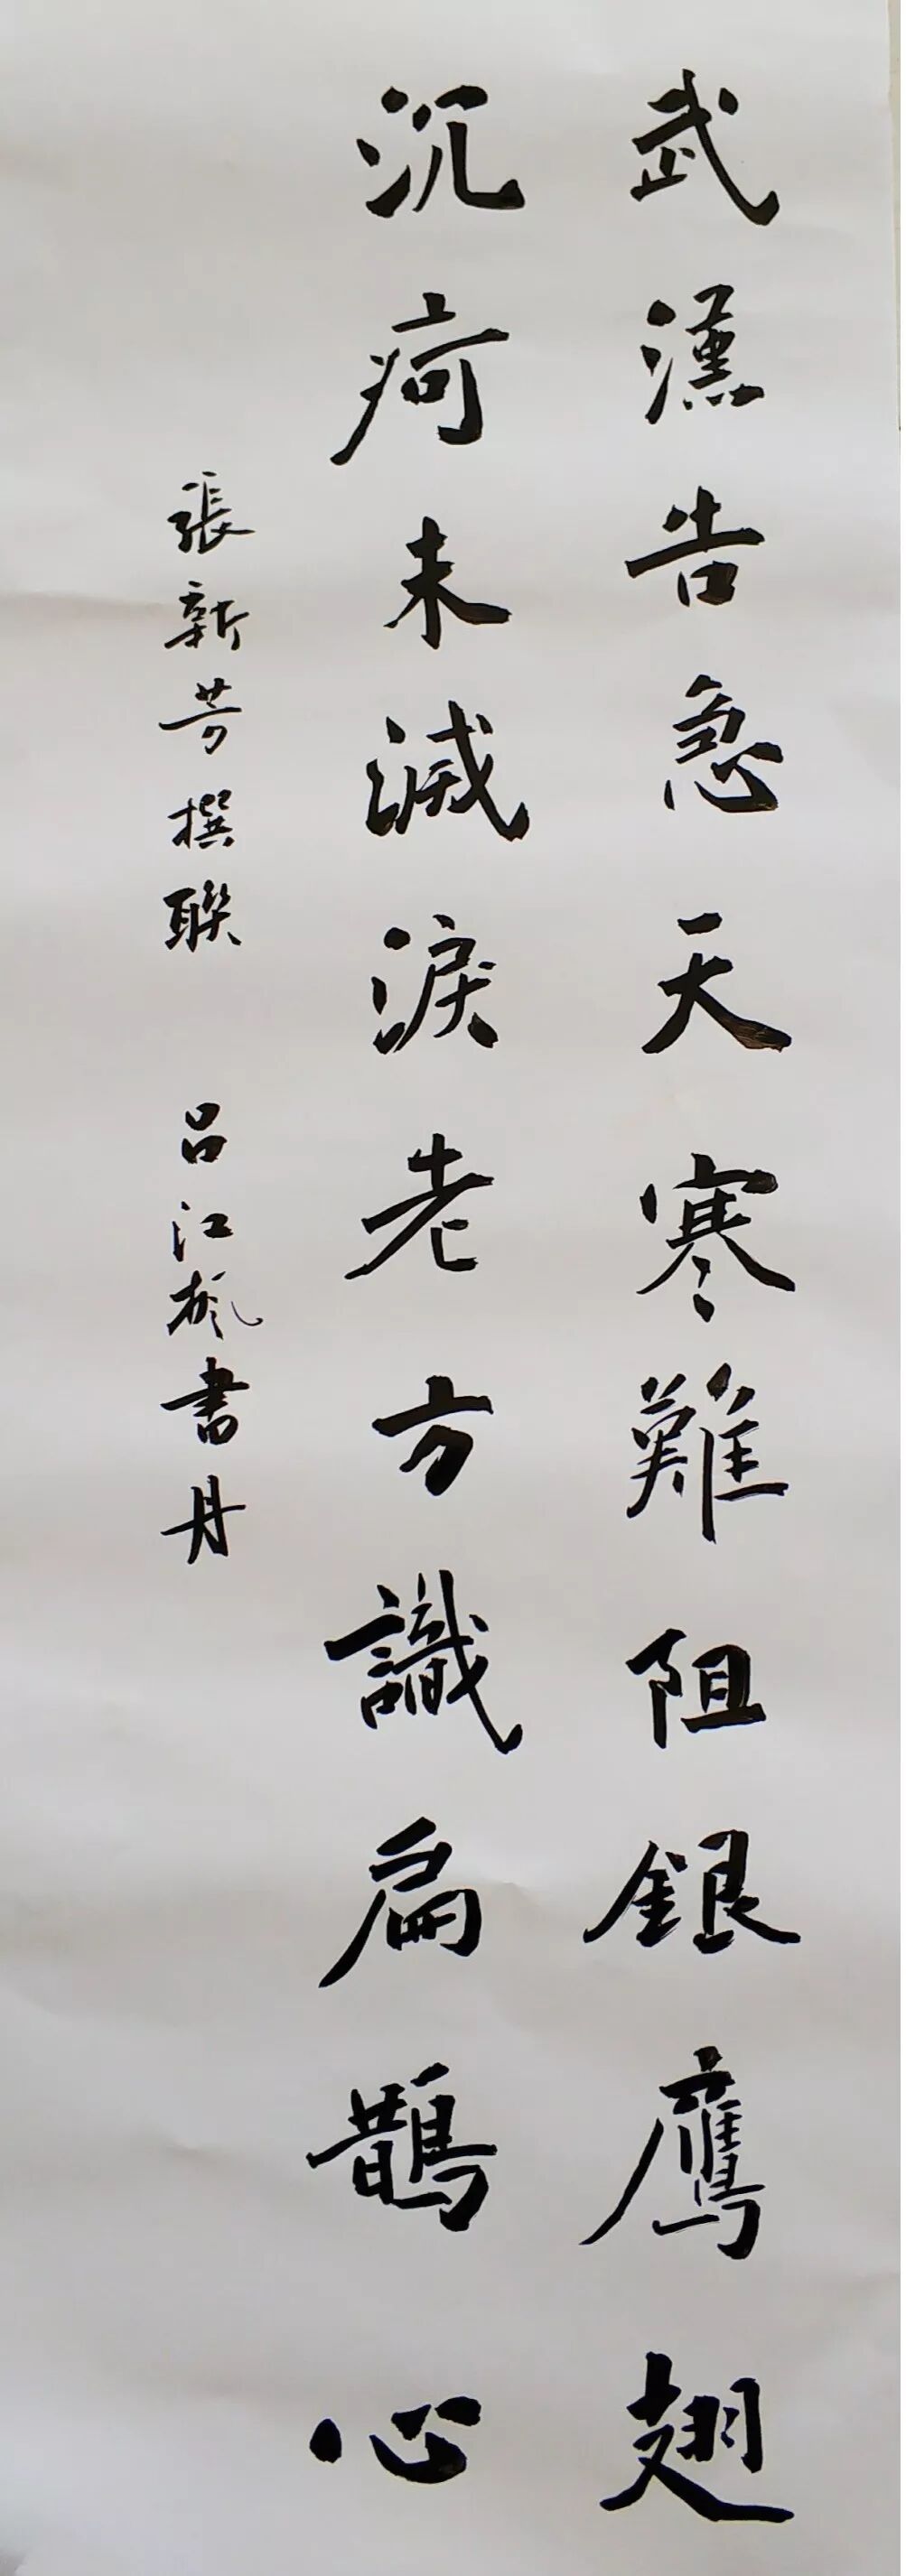 武漢告急天寒難阻銀鷹翅
沉疴未滅淚老方識扁鵲心
張新芳撰聯 呂江帆書丹